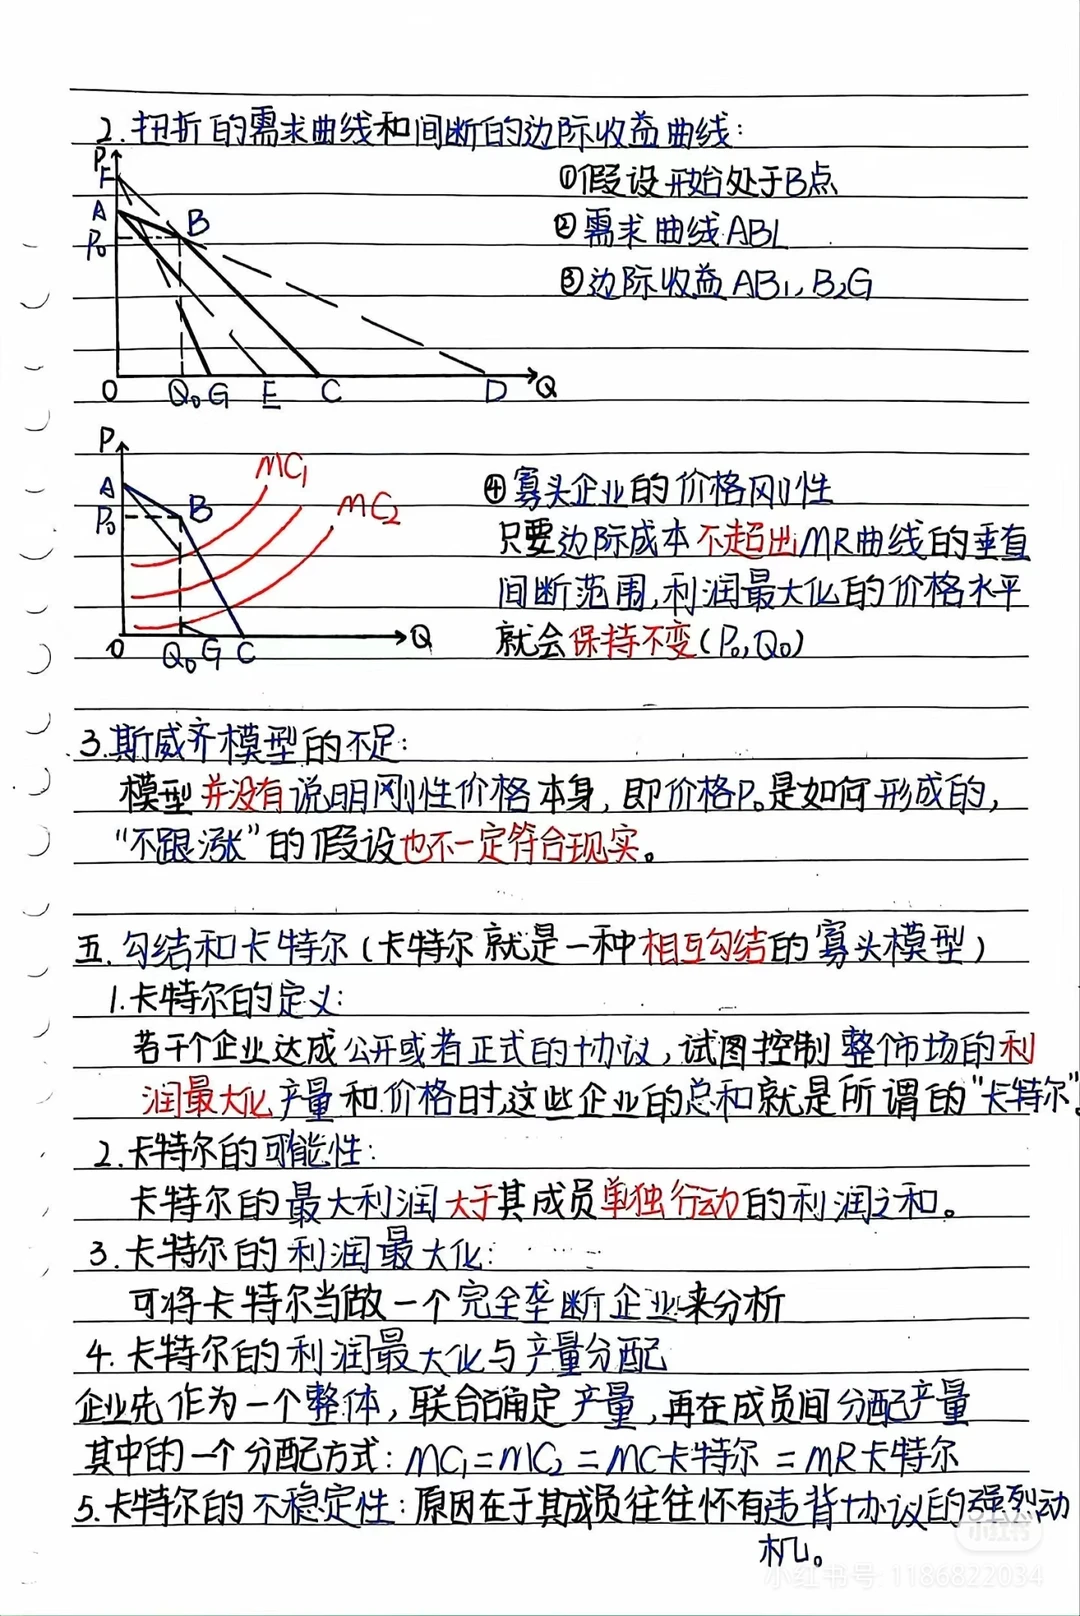 2.扭折的需求曲线和间断的边际收益曲线:
P
F
A
P₀
B
O
Q₀
G
E
C
D
Q
①假设开始处于B点
②需求曲线ABC
③边际收益AB₁,B₂G
P
A
P₀
B
MC₁
MC₂
O
Q₀
G
C
Q
④寡头企业的价格刚性
只要边际成本不超出MR曲线的垂直
间断范围,利润最大化的价格水平
就会保持不变(P₀,Q₀)
3.斯威齐模型的不足:
模型并没有说明刚性价格本身,即价格P₀是如何形成的,
“不跟涨”的假设也不一定符合现实。
五.勾结和卡特尔(卡特尔就是一种相互勾结的寡头模型)
1.卡特尔的定义:
若干个企业达成公开或者正式的协议,试图控制整个市场的利
润最大化产量和价格时,这些企业的总和就是所谓的“卡特尔”。
2.卡特尔的可能性:
卡特尔的最大利润大于其成员单独行动的利润之和。
3.卡特尔的利润最大化:
可将卡特尔当做一个完全垄断企业来分析
4.卡特尔的利润最大化与产量分配
企业先作为一个整体,联合确定产量,再在成员间分配产量
其中的一个分配方式:MC₁=MC₂=MC卡特尔=MR卡特尔
5.卡特尔的不稳定性:原因在于其成员往往怀有违背协议的强烈动
机。
小红书
小红书号:1186822034